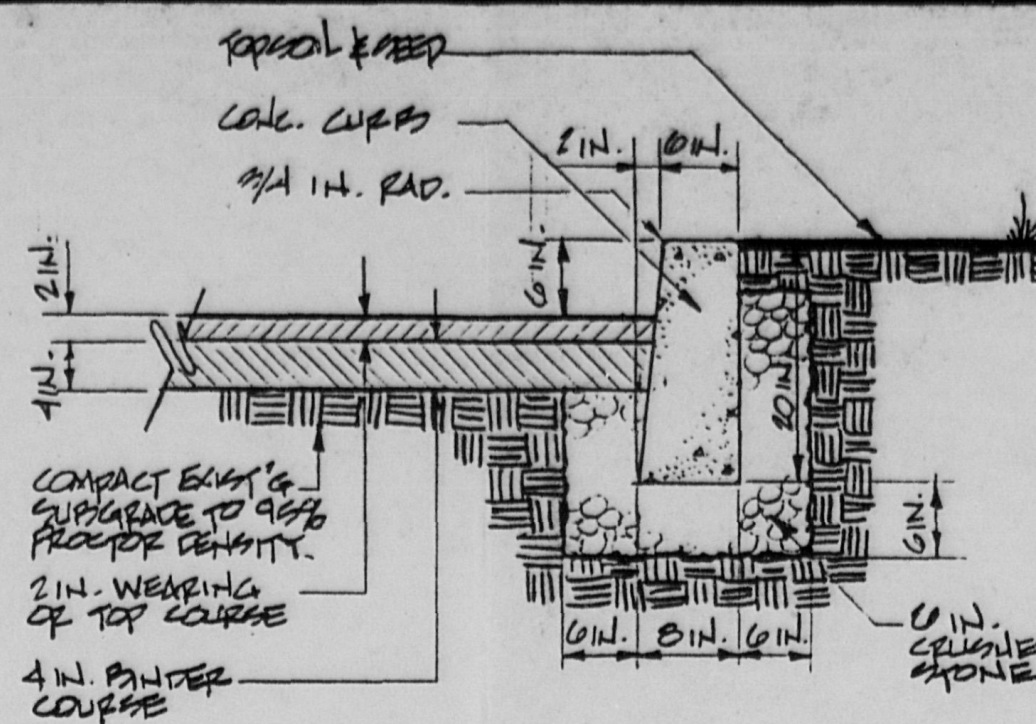 TOPSOIL & SEED
CONC. CURB
3/4 IN. RAD.
2 IN.
6 IN.
2 IN.
4 IN.
6 IN.
20 IN.
6 IN.
COMPACT EXIST'G
SUBGRADE TO 95%
PROCTOR DENSITY.
2 IN. WEARING
OR TOP COURSE
4 IN. BINDER
COURSE
6 IN.
8 IN.
6 IN.
6 IN.
CRUSHE
STONE